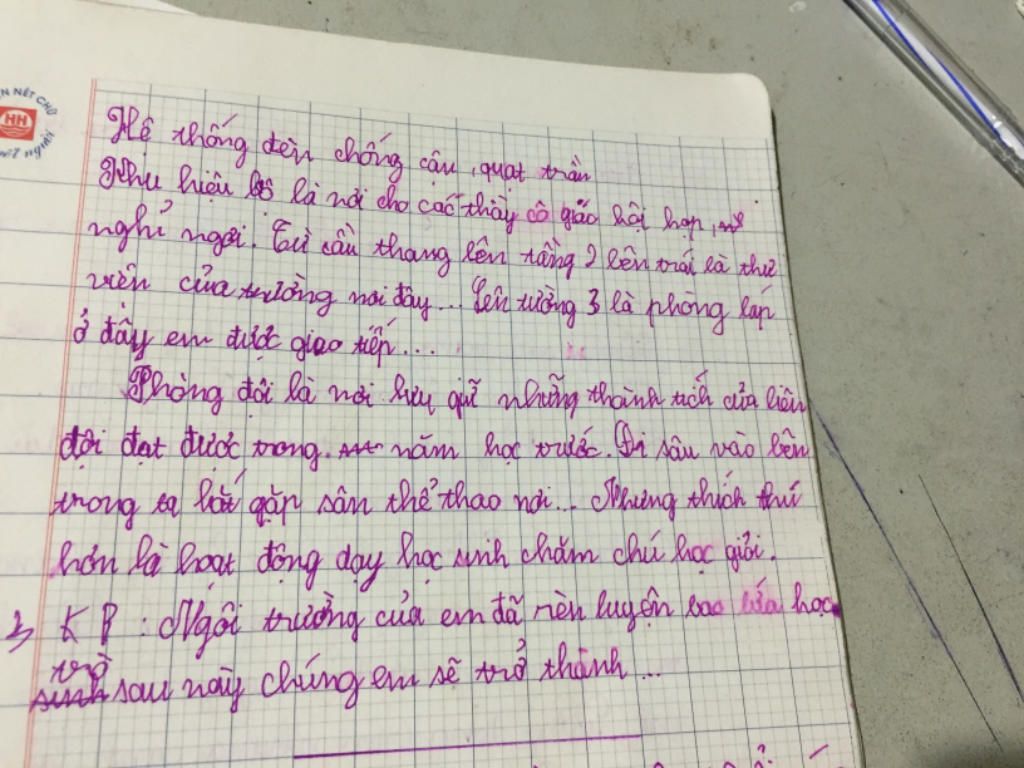 N NÉT CHỮ
HH
nết người
Hệ thống đèn chống cận, quạt trần
Khu hiệu bộ là nơi cho các thầy cô giáo hội họp,
nghỉ ngơi. Từ cầu thang lên tầng 2 bên trái là thư
viện của trường nơi đây... Lên tường 3 là phòng lap
ở đây em được giao tiếp...
Phòng đội là nơi lưu giữ những thành tích của liên
đội đạt được trong năm học trước. Đi sâu vào bên
trong ta bắt gặp sân thể thao nơi... Nhưng thích thú
hơn là hoạt động dạy học sinh chăm chú học giỏi.
3, KB : Ngôi trường của em đã rèn luyện bao lứa học
trò sau này chúng em sẽ trở thành...